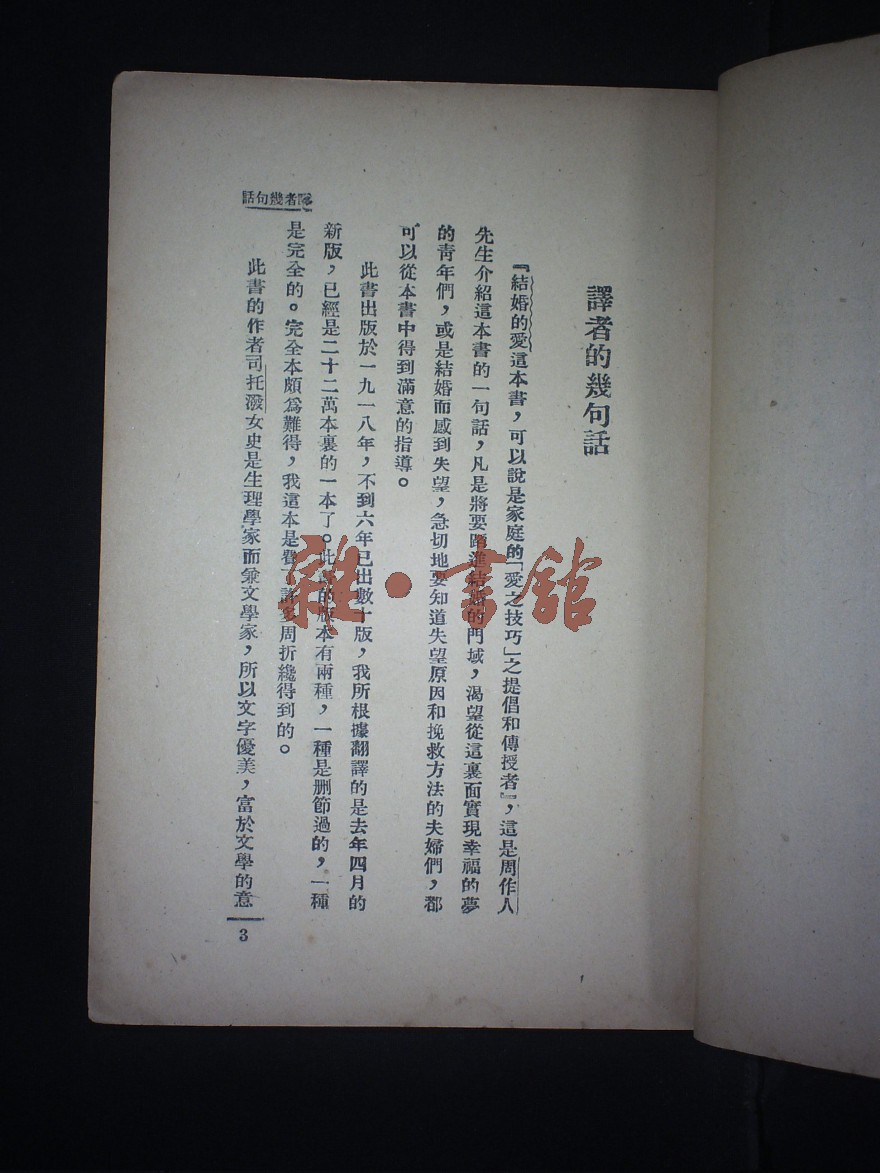 譯者的幾句話
『結婚的愛這本書，可以說是家庭的「愛之技巧」之提倡和傳授者』，這是周作人
先生介紹這本書的一句話，凡是將要踏進結婚的門域，渴望從這裏面實現幸福的夢
的靑年們，或是結婚而感到失望，急切地要知道失望原因和挽救方法的夫婦們，都
可以從本書中得到滿意的指導。
此書出版於一九一八年，不到六年已出數十版，我所根據翻譯的是去年四月的
新版，已經是二十二萬本裏的一本了。此書的版本有兩種，一種是刪節過的，一種
是完全的。完全本頗爲難得，我這本是費了許多周折纔得到的。
此書的作者司托潑女史是生理學家而兼文學家，所以文字優美，富於文學的意
譯者幾句話
3
雜·書舘